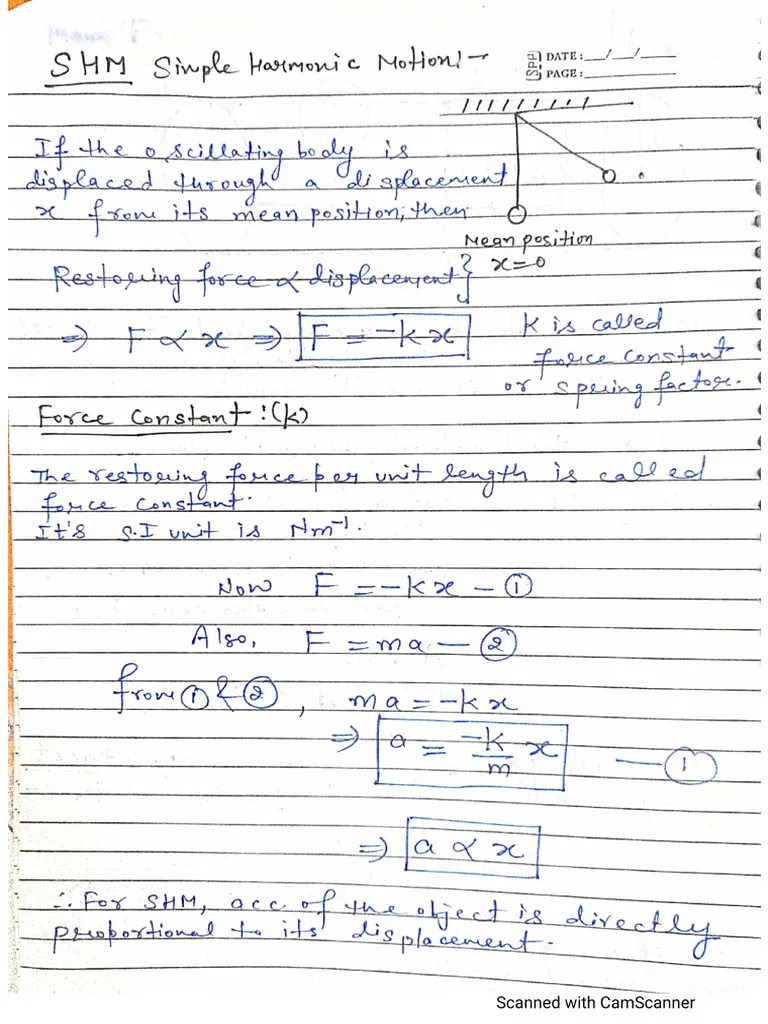 SHM Simple Harmonic Motion:-
Spp DATE:__/__/__
PAGE:
If the oscillating body is
displaced through a displacement
x from its mean position, then
Mean position
x=0
Restoring force ∝ displacement}
⇒ F ∝ x ⇒ F = -kx
K is called
force constant
or spring factor.
Force Constant:(k)
The restoring force per unit length is called
force constant.
It's S.I unit is Nm⁻¹.
Now F = -kx - ①
Also, F = ma - ②
from ① & ②, ma = -kx
⇒ a = -k/m x — ①
⇒ a ∝ x
∴ For SHM, acc. of the object is directly
proportional to its displacement.
Scanned with CamScanner